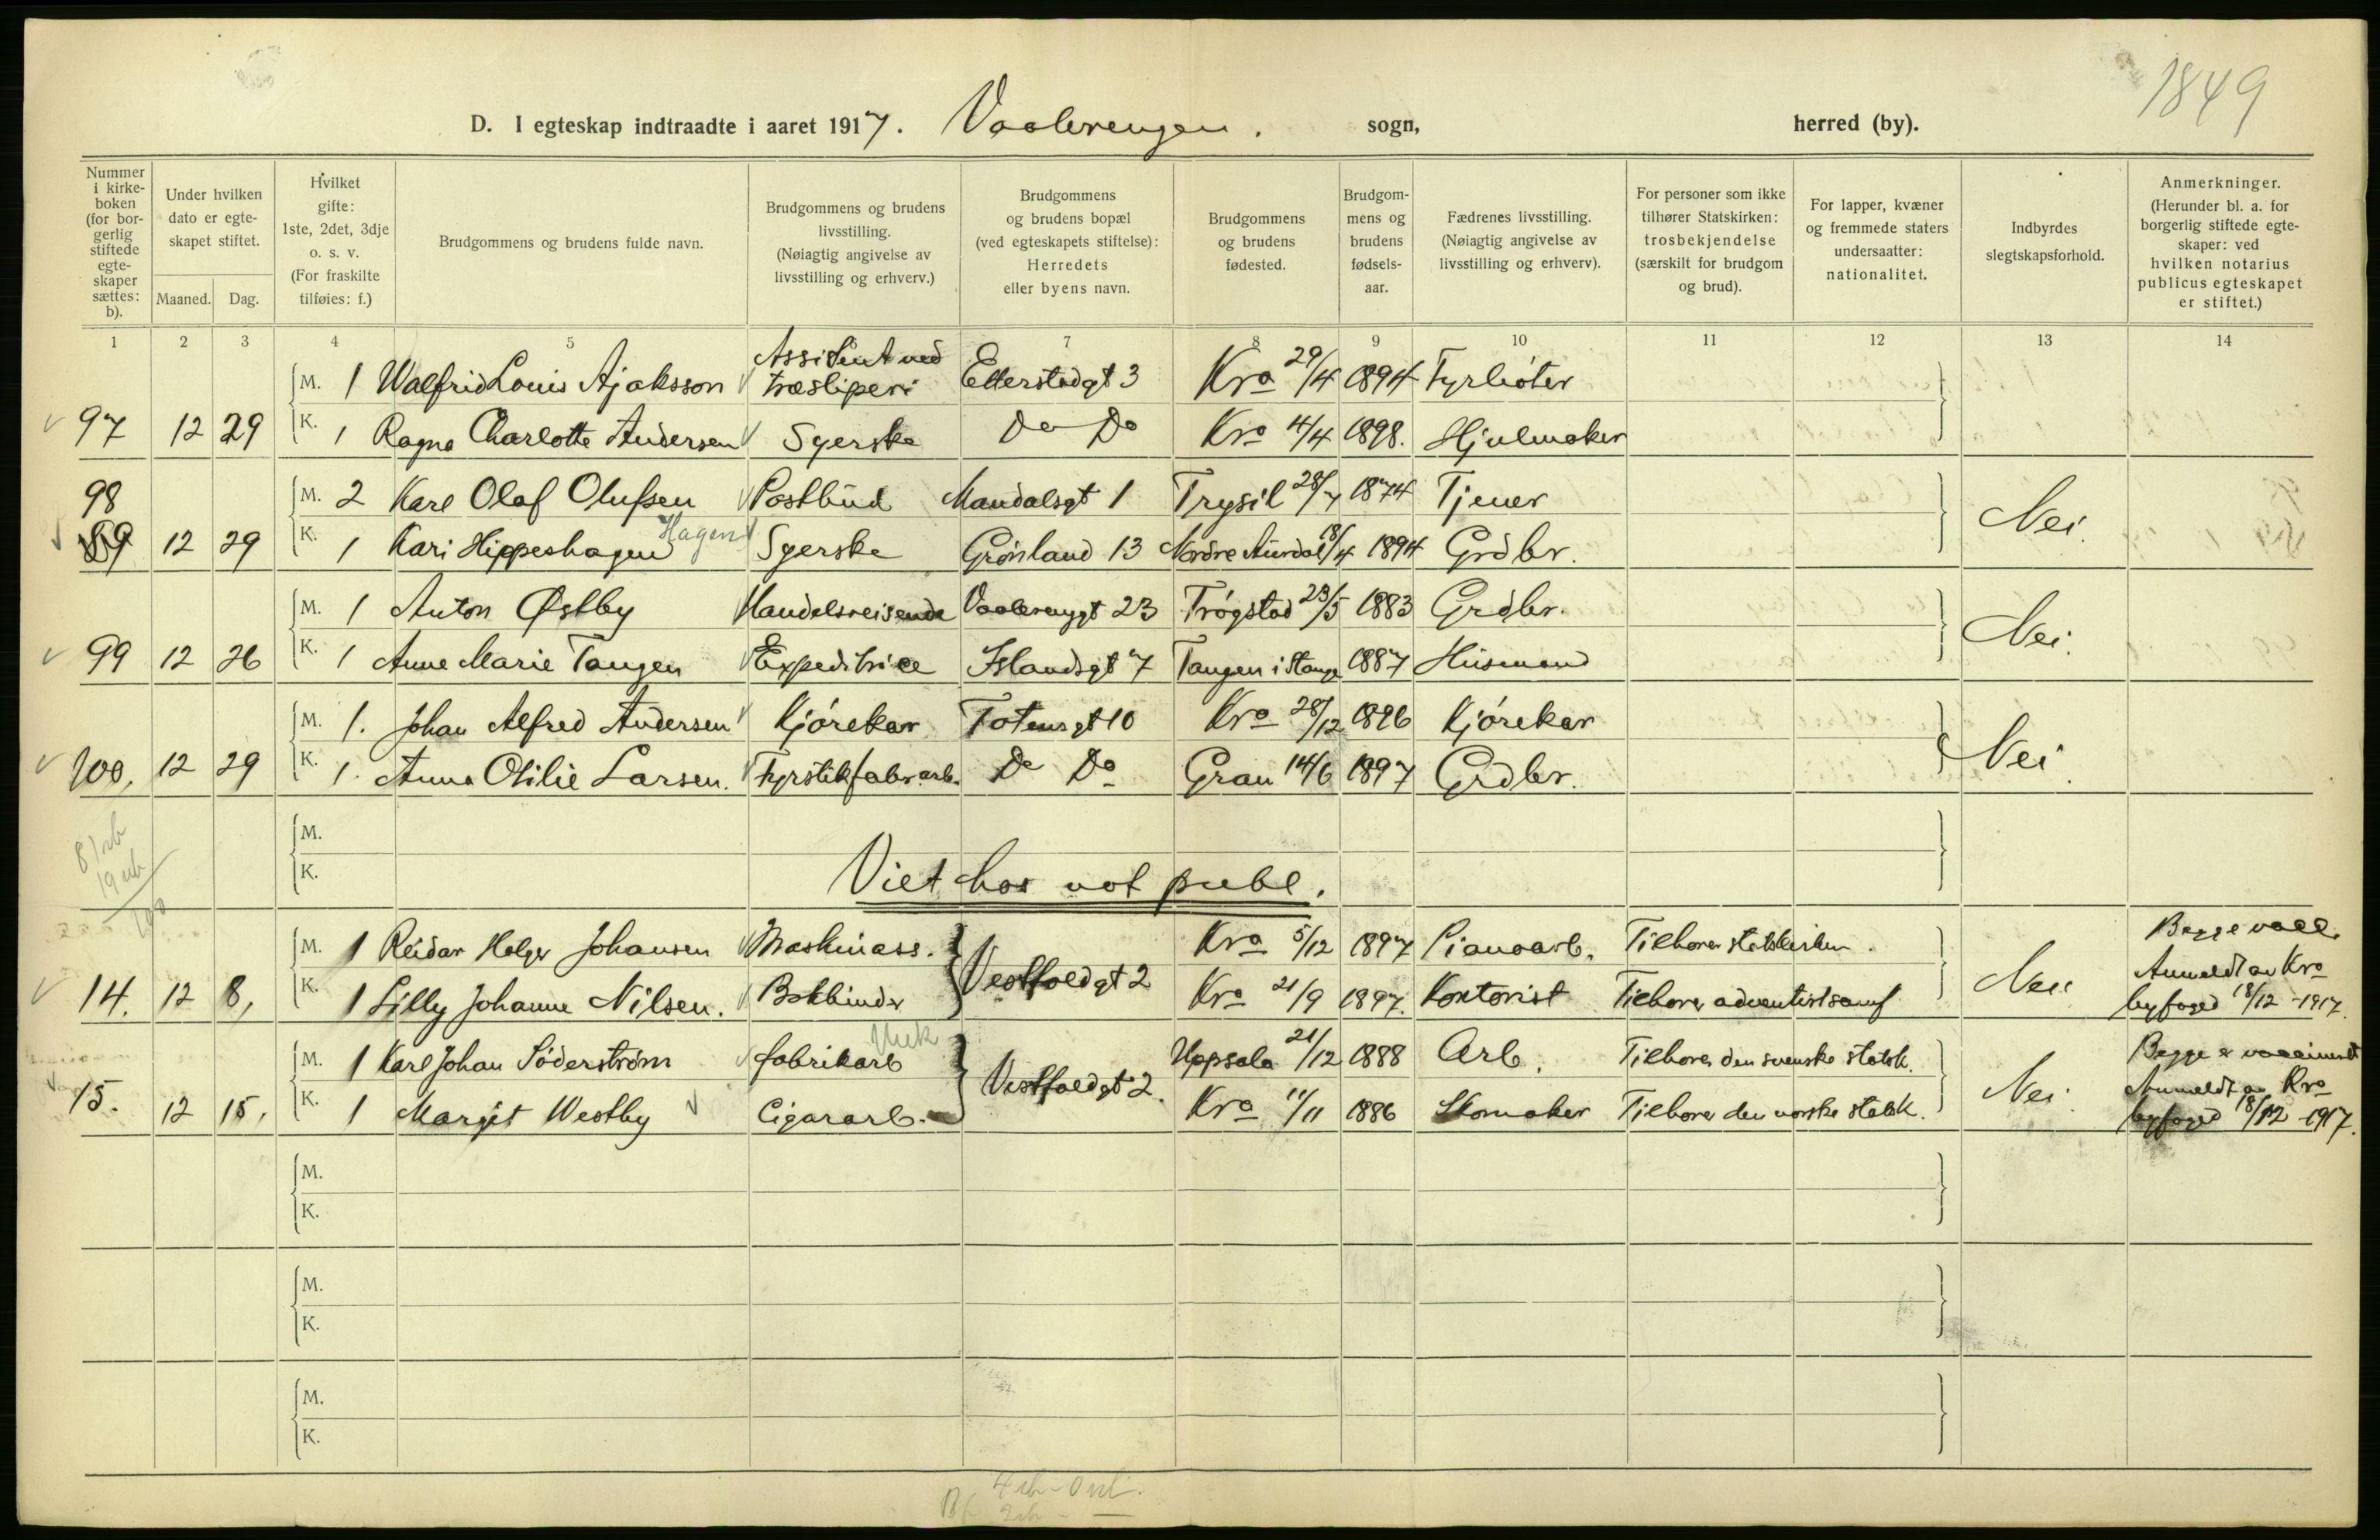 1849
D. I egteskap indtraadte i aaret 1917. Vaalerengen. sogn, herred (by).
Nummer i kirke- boken (for bor- gerlig stiftede egte- skaper sættes: b).
Under hvilken dato er egte- skapet stiftet.
Maaned. Dag.
Hvilket gifte: 1ste, 2det, 3dje o. s. v. (For fraskilte tilføies: f.)
Brudgommens og brudens fulde navn.
Brudgommens og brudens livsstilling. (Nøiagtig angivelse av livsstilling og erhverv.)
Brudgommens og brudens bopæl (ved egteskapets stiftelse): Herredets eller byens navn.
Brudgommens og brudens fødested.
Brudgom- mens og brudens fødsels- aar.
Fædrenes livsstilling. (Nøiagtig angivelse av livsstilling og erhverv).
For personer som ikke tilhører Statskirken: trosbekjendelse (særskilt for brudgom og brud).
For lapper, kvæner og fremmede staters undersaatter: nationalitet.
Indbyrdes slegtskapsforhold.
Anmerkninger. (Herunder bl. a. for borgerlig stiftede egte- skaper: ved hvilken notarius publicus egteskapet er stiftet.)
1 2 3 4 5 7 8 9 10 11 12 13 14
M. 1 Walfrid Louis Ajaksson Assistent ved træsliperi Etterstadgt 3 Kra 29/4 1894 Fyrbøter
97 12 29 K. 1 Ragna Charlotte Andersen Syerske Do Do Kra 4/4 1898. Hjulmaker
98 M. 2 Karl Olaf Olufsen Postbud Mandalsgt 1 Trysil 28/7 1874 Tjener
89 12 29 K. 1 Kari Hippeshagen Hagen Syerske Grønland 13 Nordre Aurdal 18/4 1894 Grdbr. Nei.
M. 1 Anton Østby Handelsreisende Vaalerenggt 23 Trøgstad 23/5 1883 Grdbr.
99 12 26 K. 1 Anne Marie Tangen Expeditrice Islandsgt 7 Tangen i Stange 1887 Husmand Nei.
M. 1. Johan Alfred Andersen Kjørekar Totensgt 10 Kra 28/12 1896 Kjørekar
100, 12 29 K. 1. Anna Otilie Larsen. Fyrstikfabr.arb. Do Do Gran 14/6 1897 Grdbr. Nei.
M.
K.
Viet hos not publ.
M. 1 Reidar Holger Johansen Maskinass. Vestfoldgt 2 Kra 5/12 1897 Pianoarb. Tilhører statskirken. Begge vacc.
14. 12 8, K. 1 Lilly Johanne Nilsen. Bokbinder Kra 21/9 1897. Kontorist Tilhører adventistsamf Nei Anmeldt av Kra byfoged 18/12 - 1917.
M. 1 Karl Johan Söderström fabrikarb Vestfoldgt 2. Uppsala 21/12 1888 Arb. Tilhører den svenske statsk. Begge er vaccinert
15. 12 15, K. 1 Margit Westby Cigararb. Kra 11/11 1886 Skomaker Tilhører den norske statsk. Nei. Anmeldt av Kra byfoged 18/12 - 1917.
M.
K.
M.
K.
M.
K.